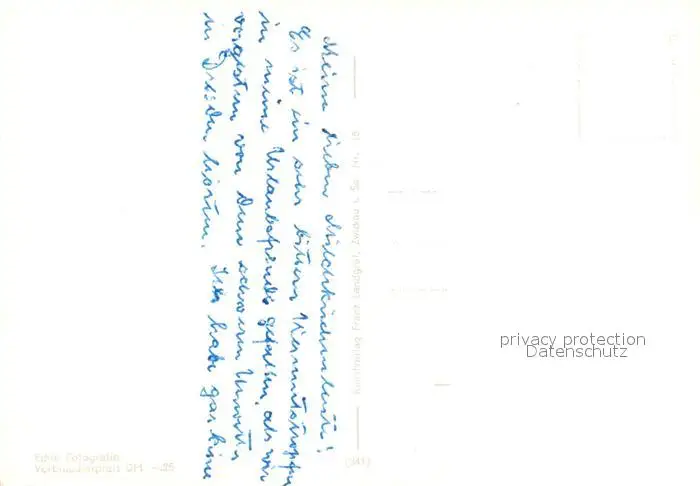 Meine lieben Milchkirchnerleute!
Es ist ein sehr bitterer Wermutstropfen
in meine Urlaubsfreude gefallen, als wir
vorgestern von dem schweren Unwetter
in Dresden hörten. Ich habe gar keine
Kunstverlag Franz Landgraf, Zwickau i. Sa. Nr. 15
(341)
Echte Fotografie
Verbraucherpreis DM -.25
privacy protection
Datenschutz